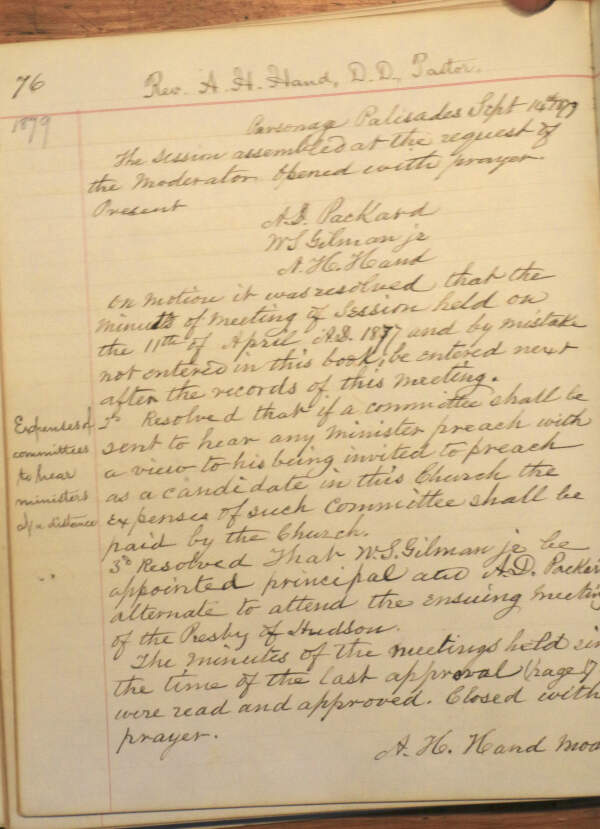 76
Rev. A. H. Hand, D. D., Pastor.
1879
Parsonage Palisades Sept 14th 1879
The Session assembled at the request of
the Moderator. Opened with prayer.
Present
A. D. Packard
W S Gilman jr
A. H. Hand
On motion it was resolved that the
minutes of meeting of Session held on
the 11th of April A.D. 1877 and by mistake
not entered in this book, be entered next
after the records of this meeting.
2d Resolved that if a committee shall be
sent to hear any minister preach with
a view to his being invited to preach
as a candidate in this Church the
Expenses of such Committee shall be
paid by the Church.
Expenses of
committees
to hear
ministers
at a distance
3d Resolved That W. S. Gilman jr be
appointed principal and A. D. Packard
alternate to attend the ensuing meeting
of the Presby of Hudson.
The minutes of the meetings held sin
the time of the last approval (page
were read and approved. Closed with
prayer.
A. H. Hand Mod